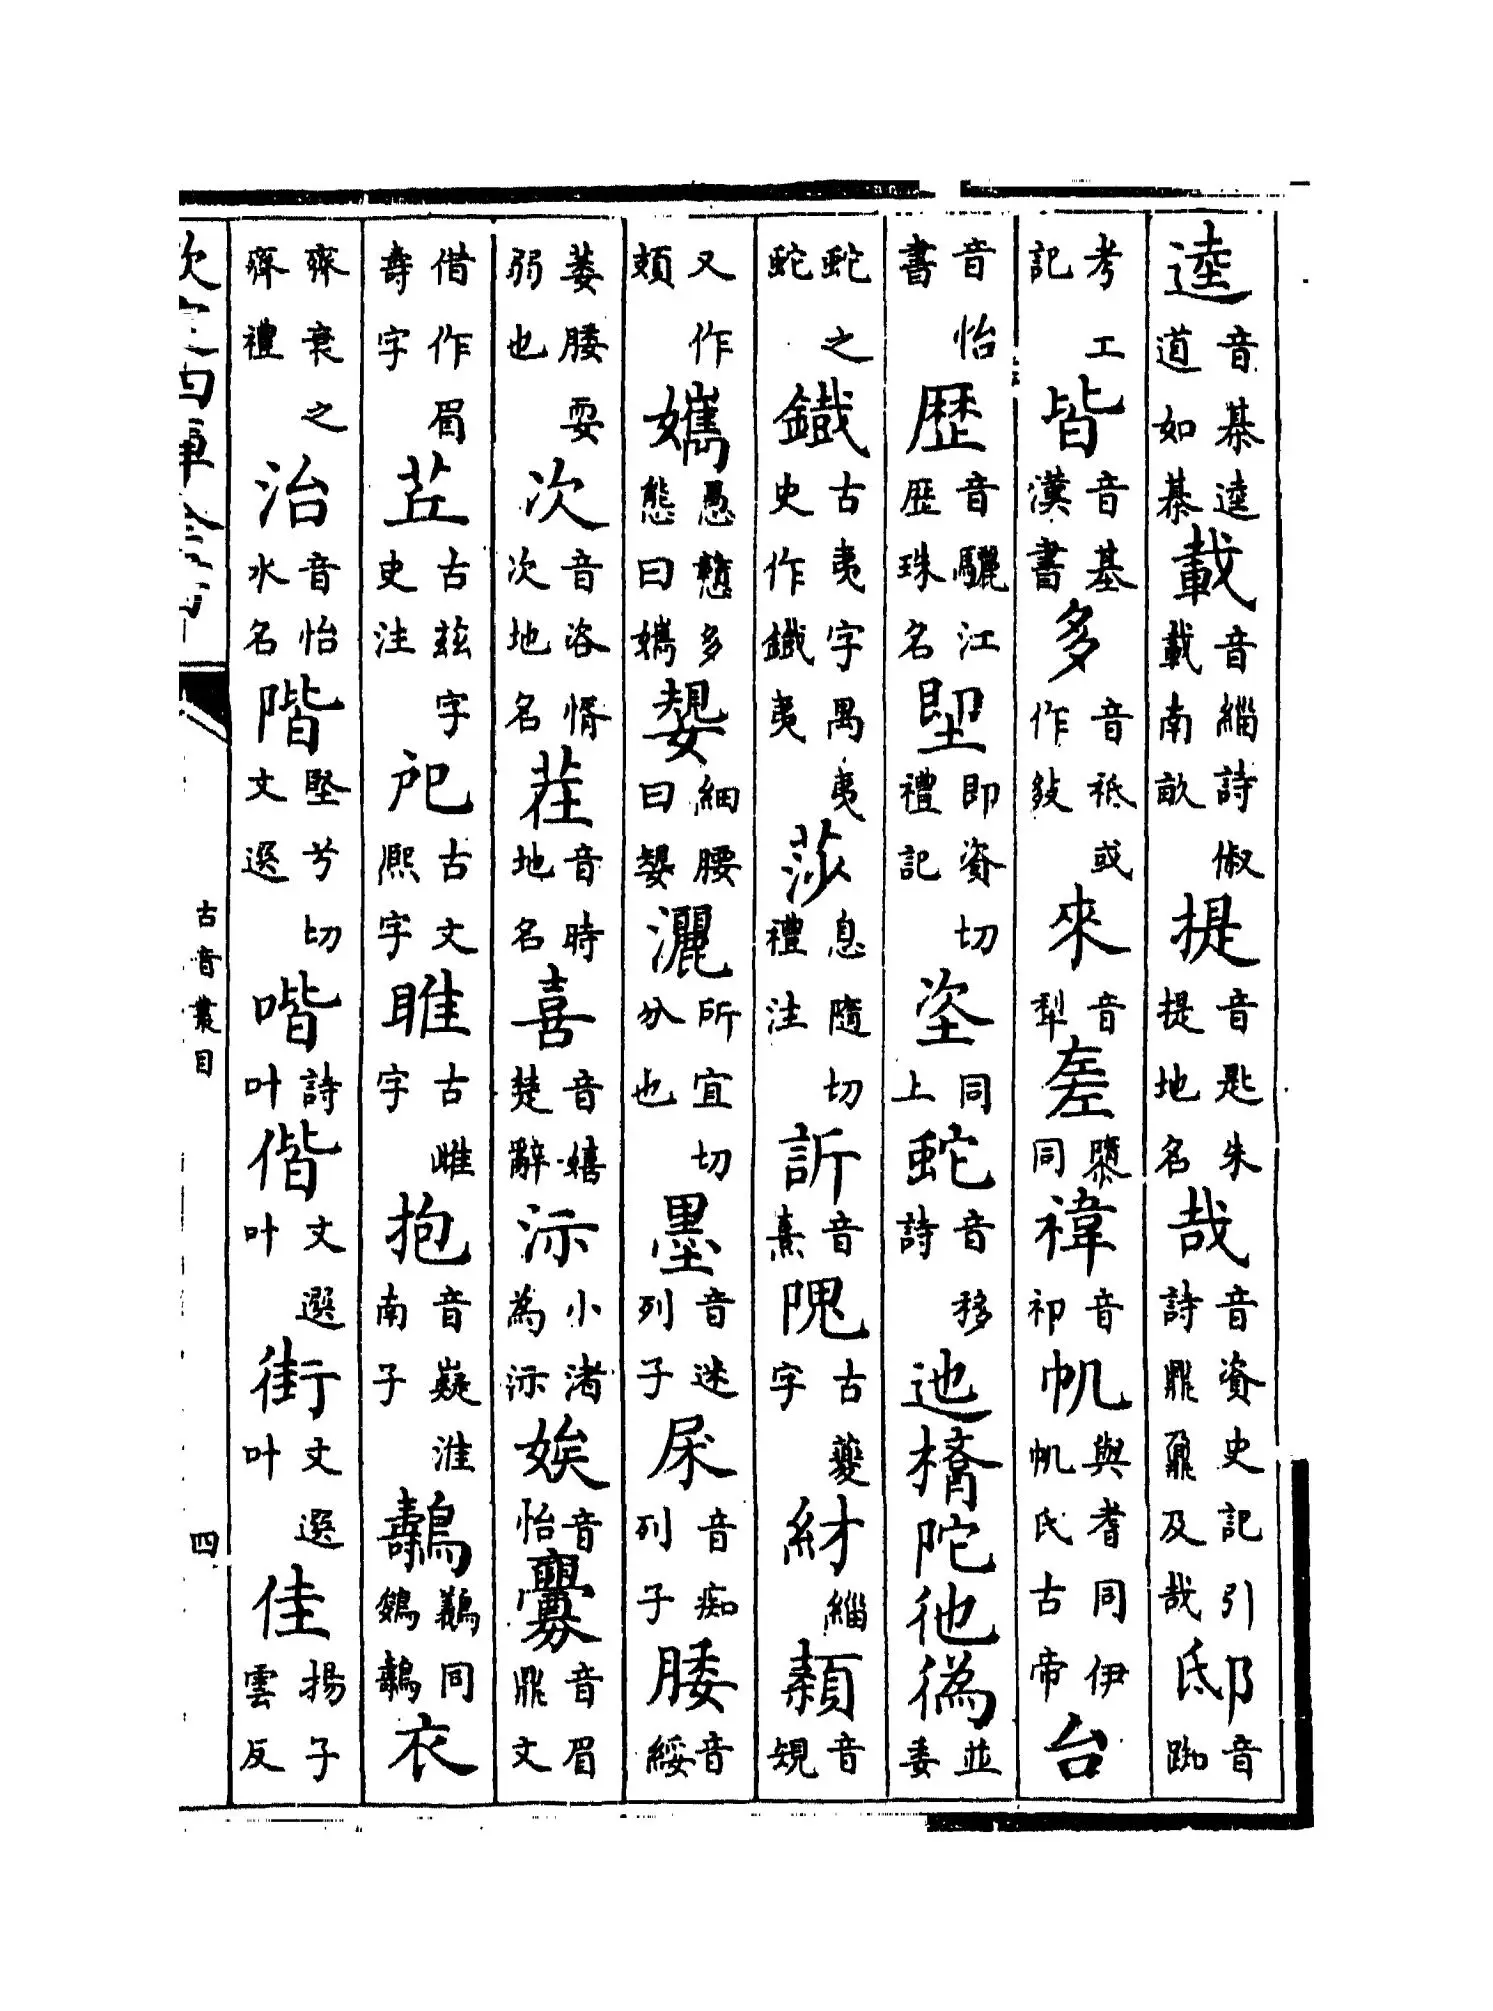 逵音棊逵道如棊載音緇詩俶載南畝提音匙朱提地名哉音資史記引詩鼎鼐及哉邸音踟
考工記皆音基漢書多音祗或作𢼊來音犁㐀隳同禕音祁帆與耆同伊帆氏古帝台
音怡書歴音驪江歴珠名堲即資切禮記垐同上蛇音移詩迆𣚊陀彵𢔡並委
蛇之蛇鐵古夷字禺夷史作鐵夷莎息隨切禮注訢音熹隗古夔字紂緇頛音規
又作頍㜞愚戇多態曰㜞嫢細腰曰嫢灑所宜切分也墨音迷列子杘音痴列子腇音綏
萎腇耎弱也次音咨惰次地名茬音時地名喜音嬉楚辭沶小渚為沶娭音怡釁音眉鼎文
借作眉壽字茊古兹字史注戺古文熈字睢古雎字抱音嶷淮南子鷫鷀同鷫衣
齊衰之齊禮治音怡水名階堅兮切文選喈詩叶偕文選叶街文選叶佳揚子雲反
欽定四庫全書 古音叢目 四